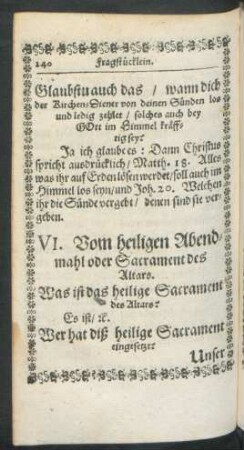 140 Fragstücklein.
Glaubstu auch das / wann dich
der Kirchen-Diener von deinen Sünden los
und ledig zehlet / solches auch bey
GOtt im Himmel kräff-
tig sey?
Ja ich glaub es: Dann Christus
spricht ausdrücklich / Matth. 18. Alles
was ihr auf Erden lösen werdet / soll auch im
Himmel los seyn / und Joh. 20. Welchen
ihr die Sünde vergebt / denen sind sie ver-
geben.
VI. Vom heiligen Abend-
mahl oder Sacrament des
Altars.
Was ist das heilige Sacrament
des Altars?
Es ist / ꝛc.
Wer hat diß heilige Sacrament
eingesetzet?
Unser